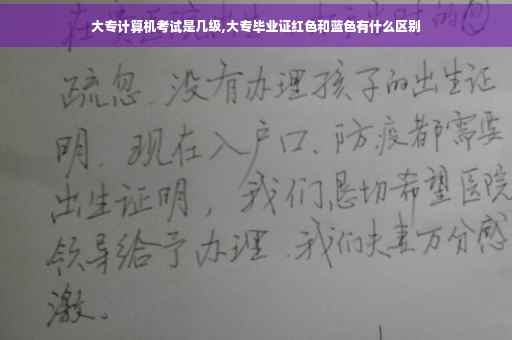 大专计算机考试是几级,大专毕业证红色和蓝色有什么区别
疏忽.没有办理孩子的出生证
明.现在入户口、防疫都需要
出生证明，我们恳切希望医院
领导给予办理.我们夫妻万分感
激。